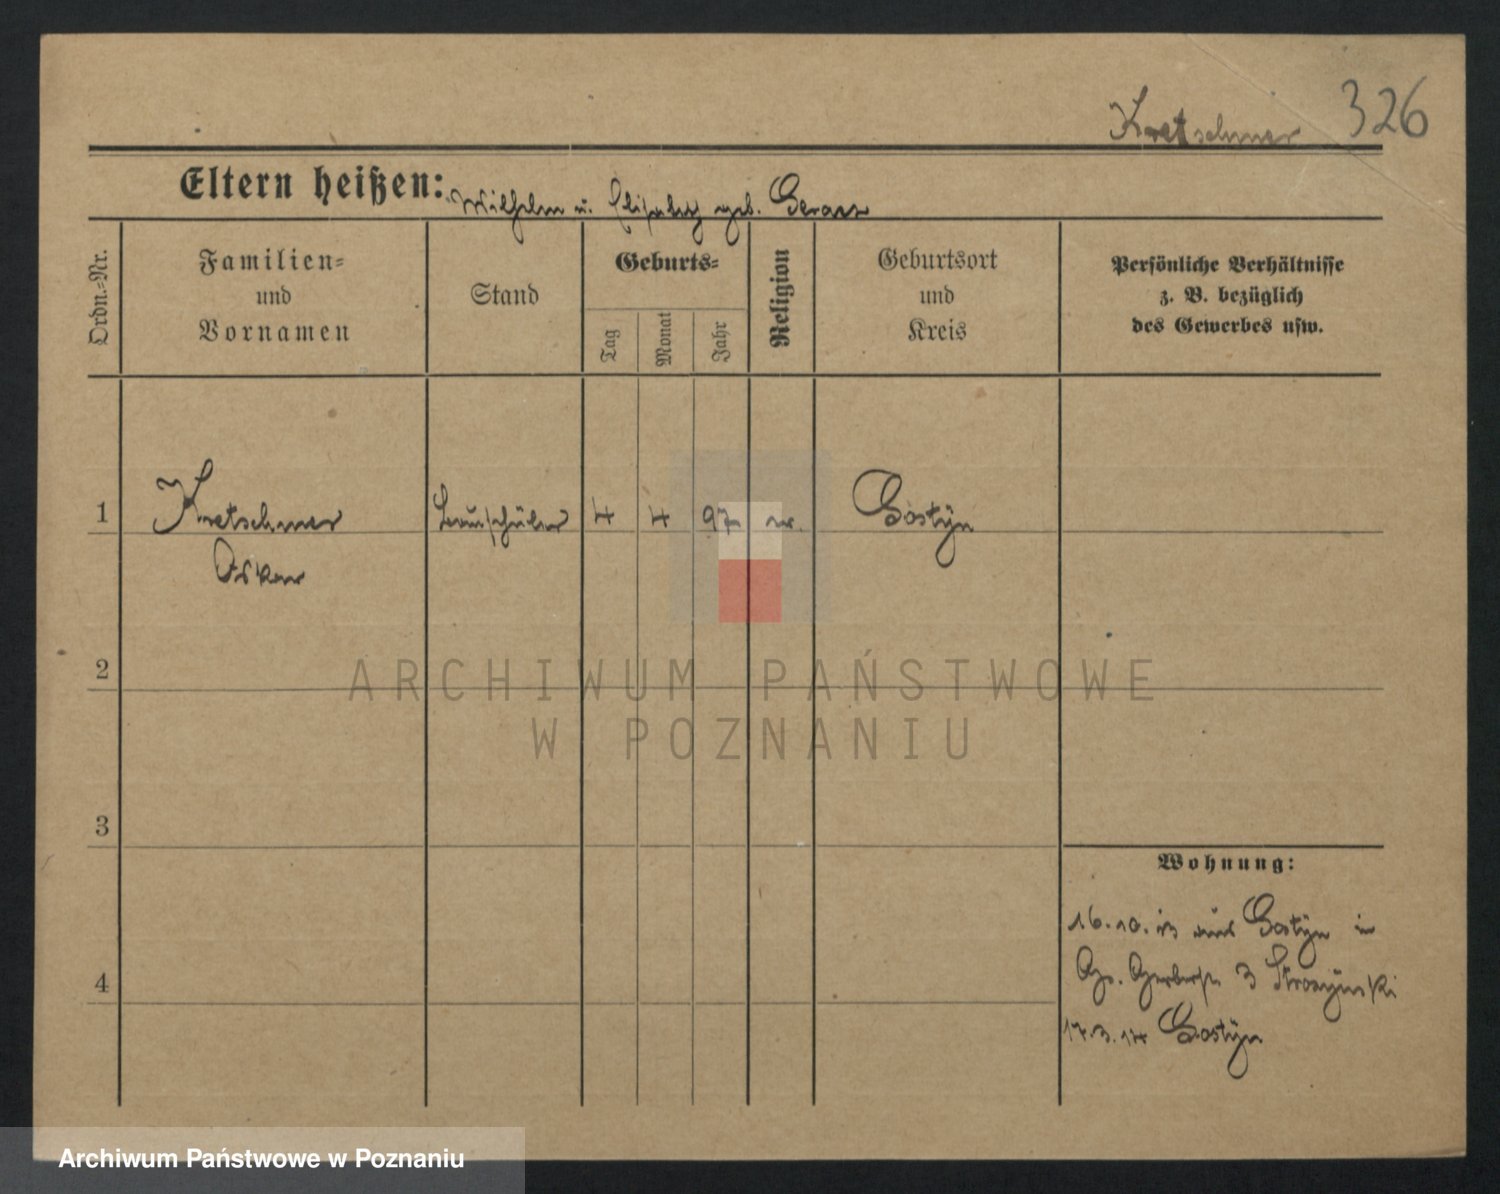 Kretschmer 326
Eltern heißen: Wilhelm u. Elisabeth geb.
Ordn.-Nr.
Familien-
und
Vornamen
Stand
Geburts-
Tag
Monat
Jahr
Religion
Geburtsort
und
Kreis
Persönliche Verhältnisse
z. B. bezüglich
des Gewerbes usw.
1 Kretschmer 4 4 97 Gostyn
Oskar
2
3
4
Wohnung:
16.10.13 aus Gostyn in
3
17.3.14 Gostyn
ARCHIWUM PAŃSTWOWE
W POZNANIU
Archiwum Państwowe w Poznaniu